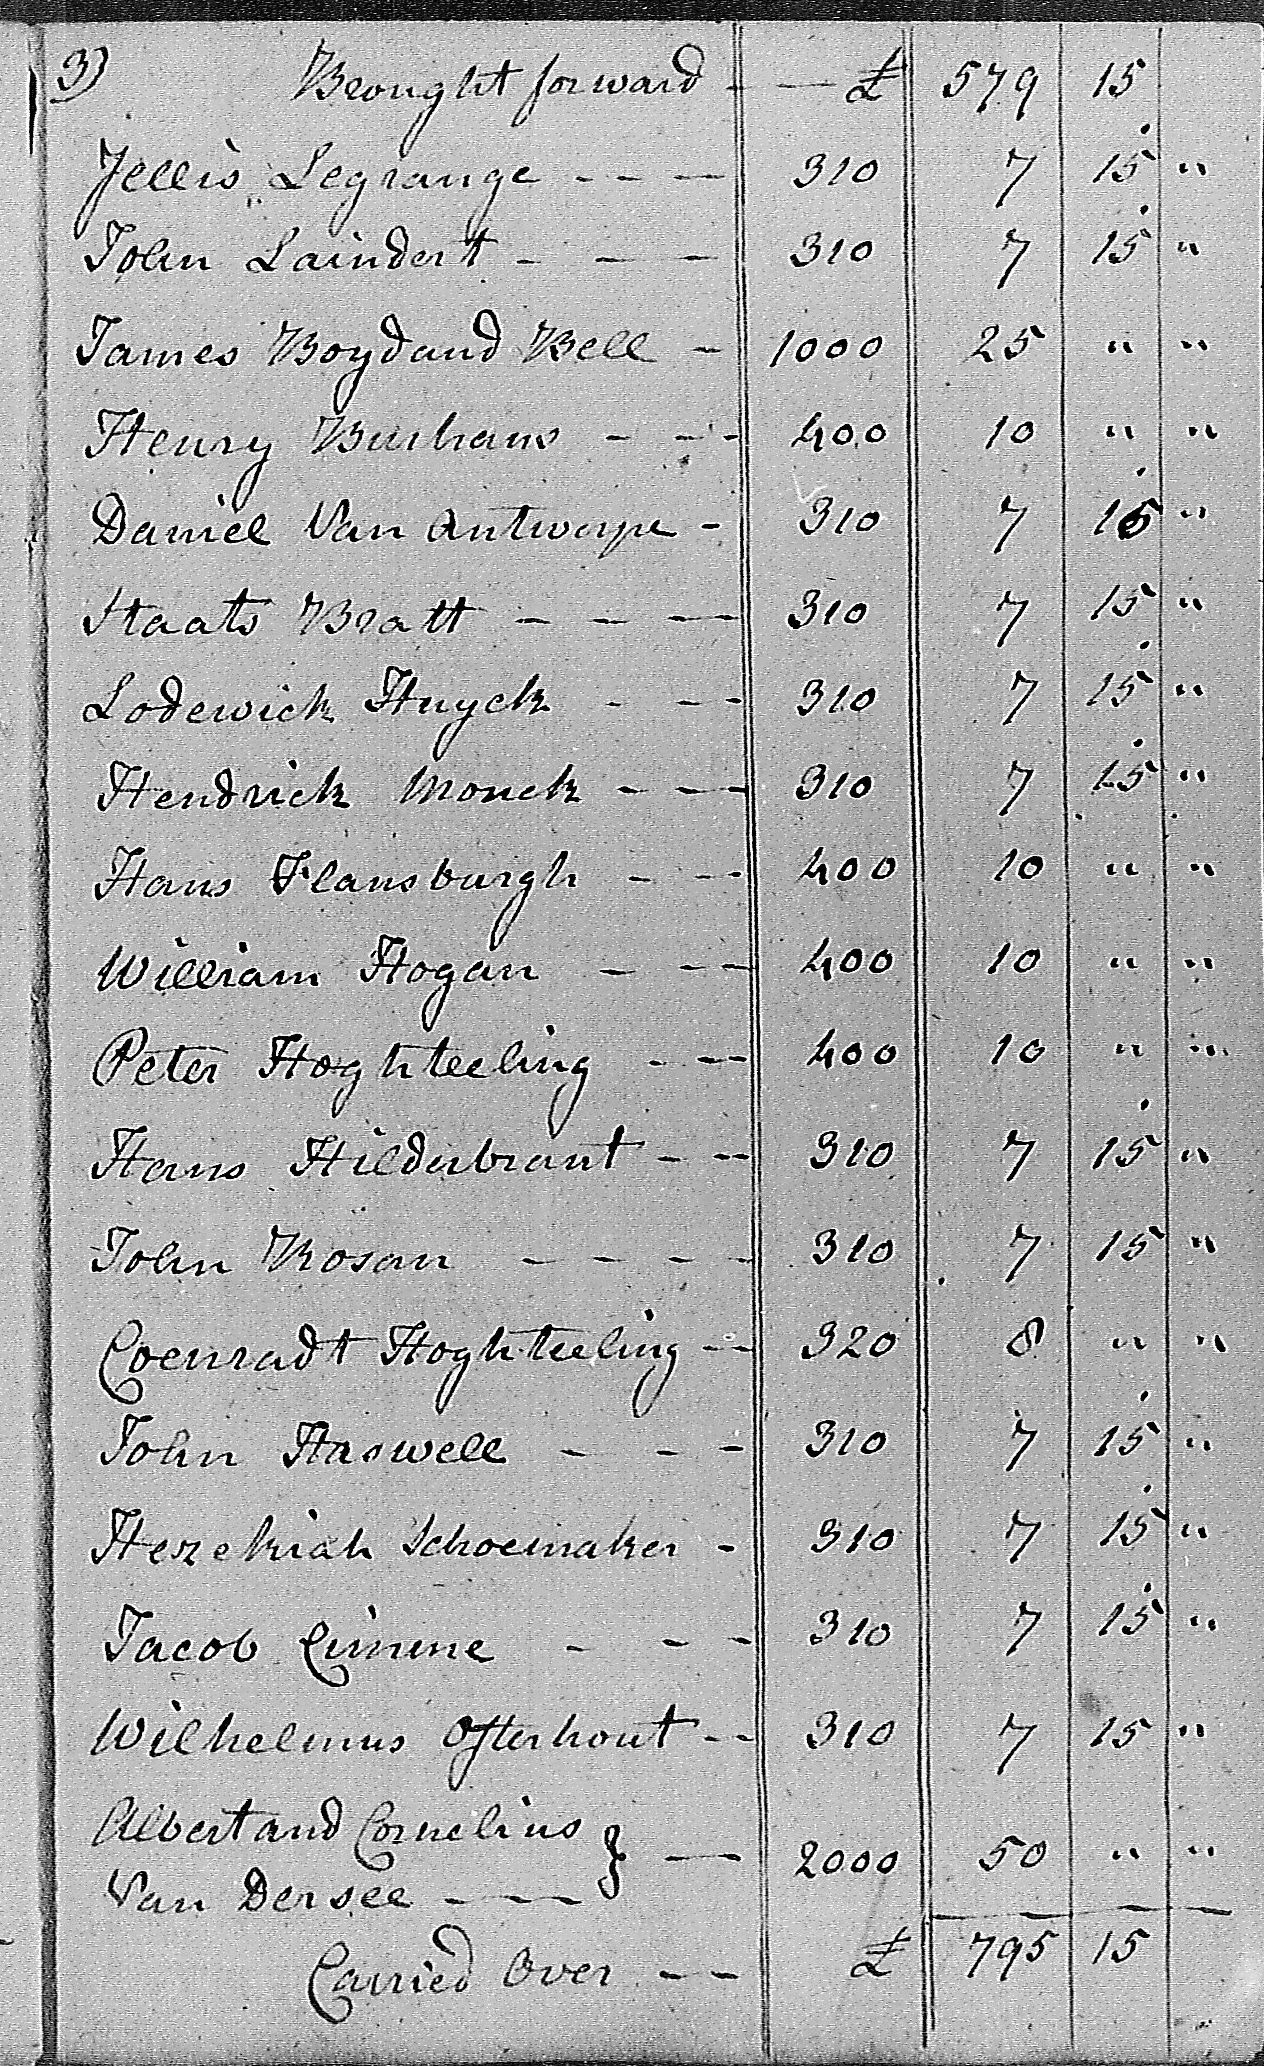 3) Brought forward - - £ 579 15
Jellis Legrange - - - 310 7 15 "
John Laindert - - - 310 7 15 "
James Boyd and Bell - 1000 25 " "
Henry Burhans - - - 400 10 " "
Daniel Van Antwerpe - 310 7 15 "
Staats Bratt - - - - 310 7 15 "
Lodewick Huyck - - - 310 7 15 "
Hendrick Mouck - - - 310 7 15 "
Hans Flansburgh - - - 400 10 " "
William Hogan - - - 400 10 " "
Peter Hoghteeling - - - 400 10 " "
Hans Hilderbrant - - - 310 7 15 "
John Rosan - - - - 310 7 15 "
Coenradt Hoghteeling - - 320 8 " "
John Haswell - - - 310 7 15 "
Hezekiah Schoemaker - 310 7 15 "
Jacob Cimme - - - 310 7 15 "
Wilhelmus Osterhout - - 310 7 15 "
Albert and Cornelius
Van Dersee - - - } - - 2000 50 " "
Carried Over - - £ 795 15